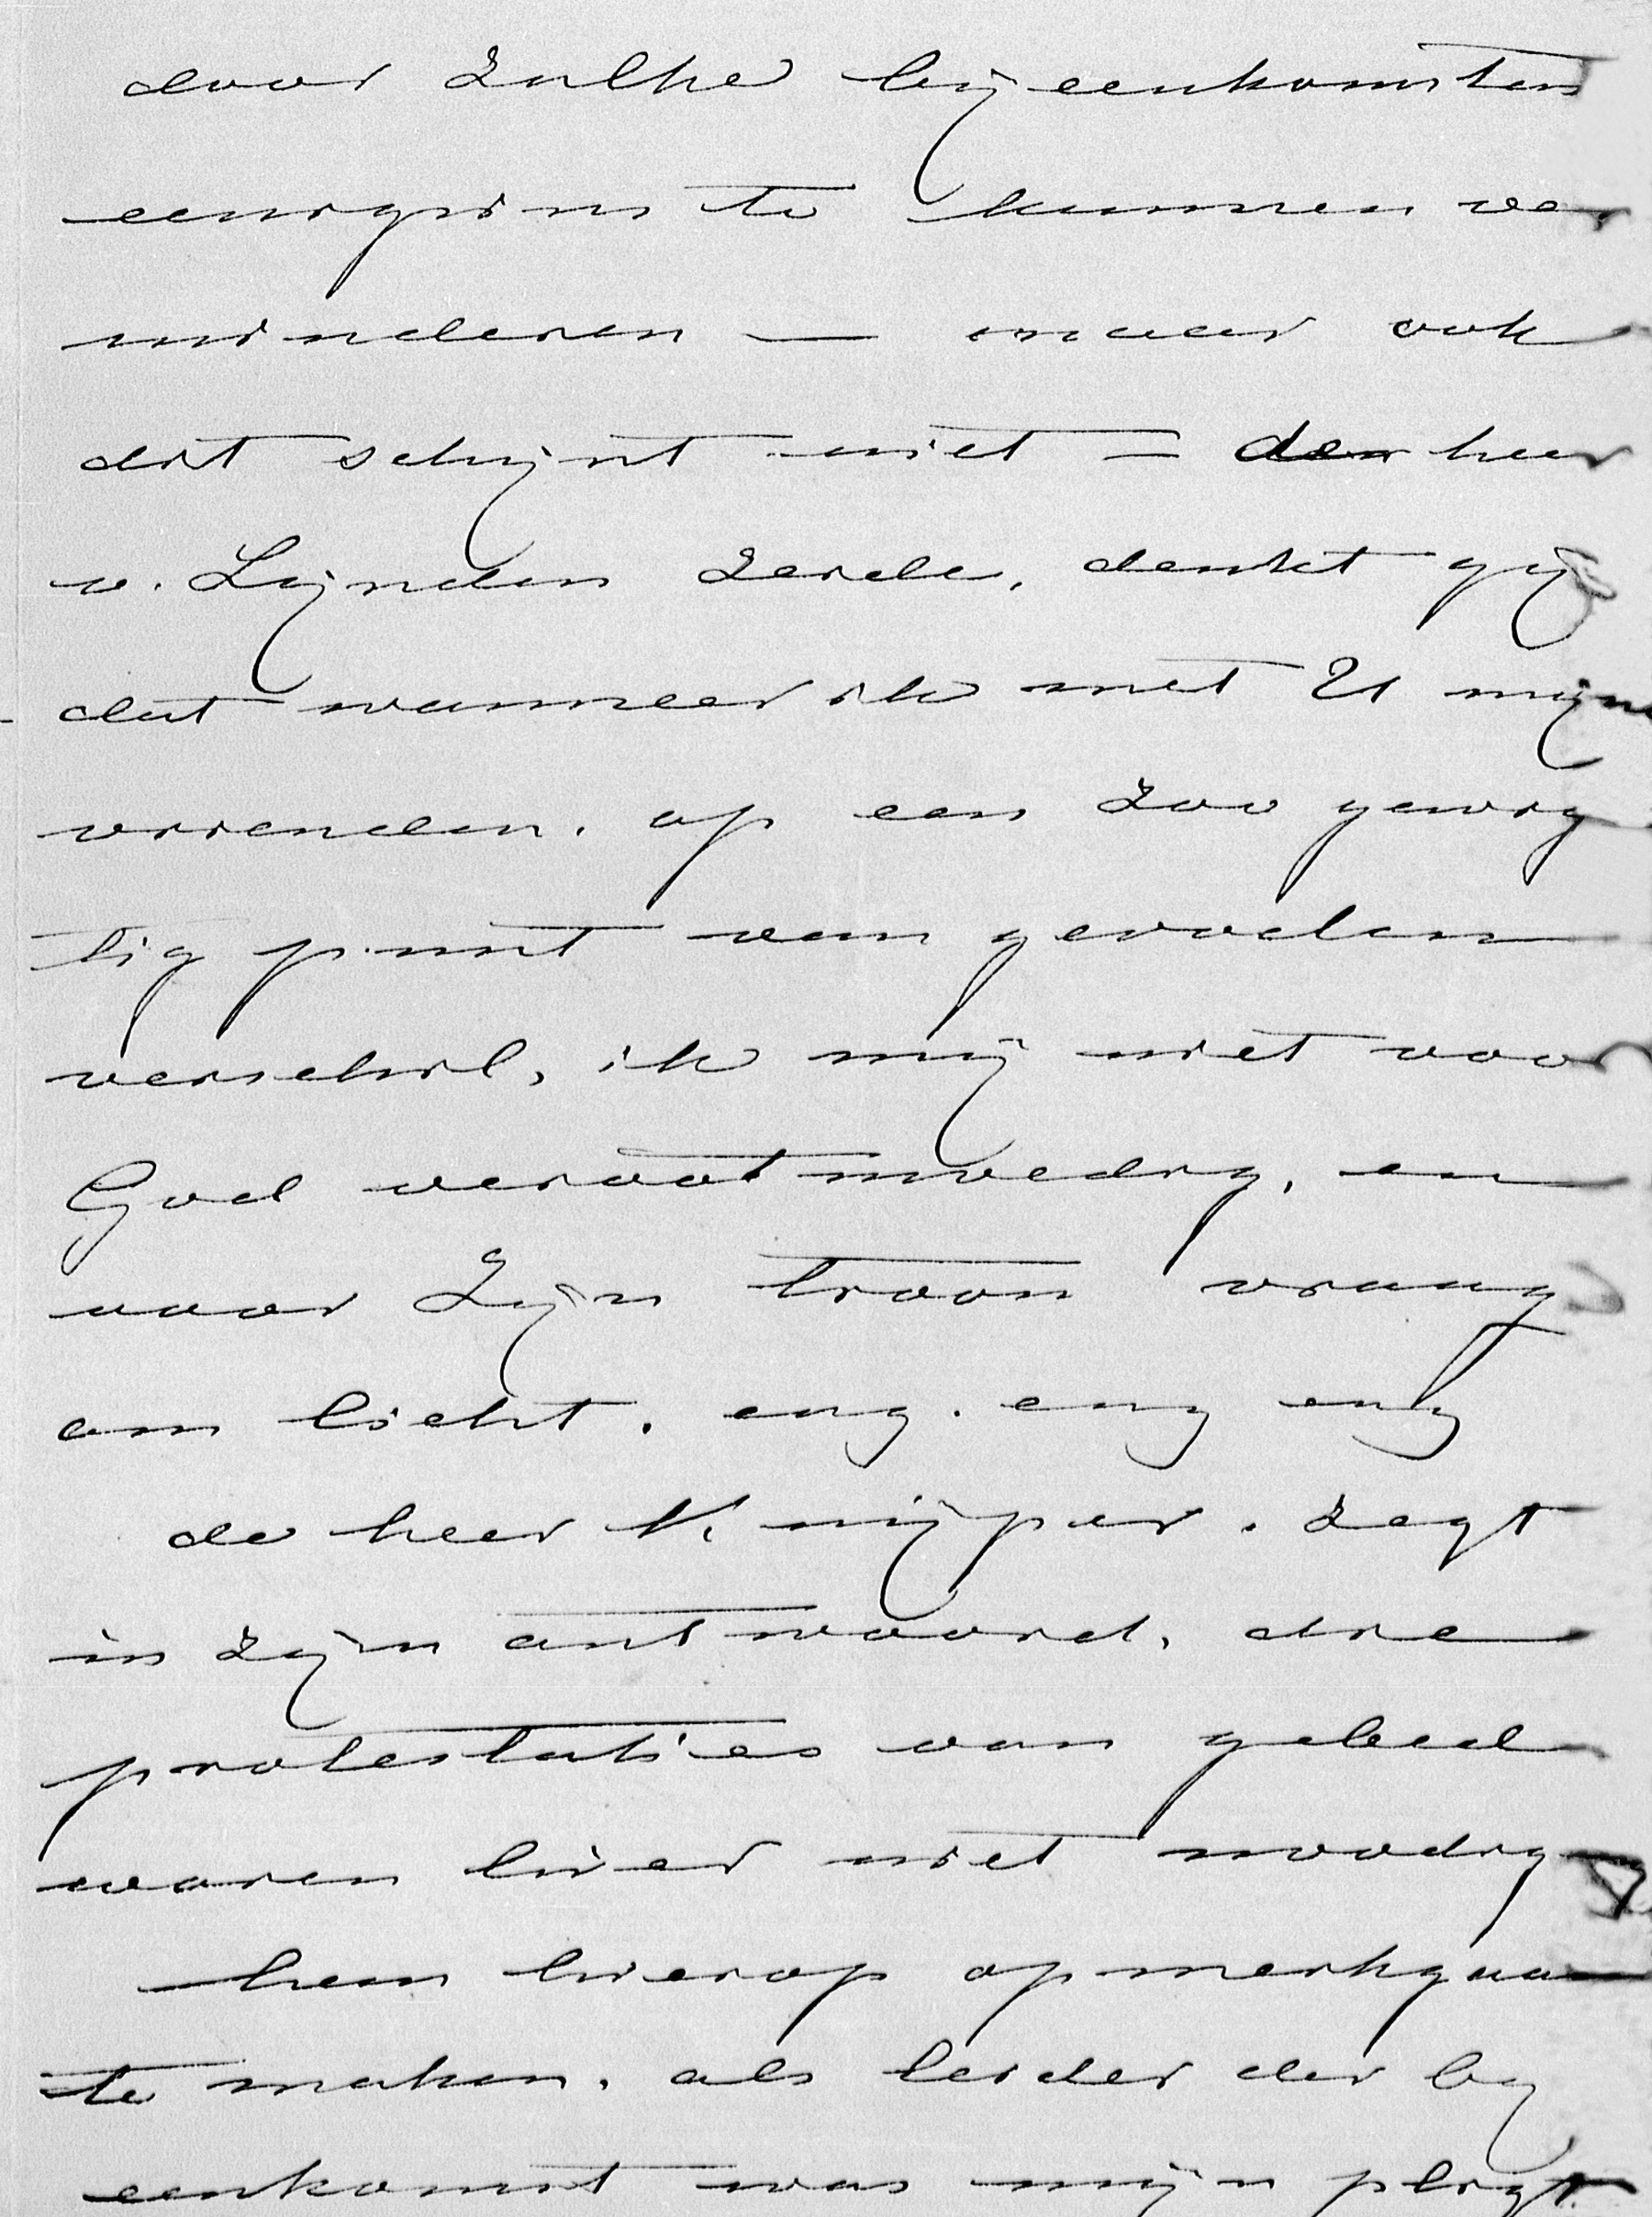 door zulke bijeenkomsten
eenigzins te kunnen ver
minderen — maar ook
dit schijnt niet — der heer
v. Lijnden zeide, denkt gij
dat wanneer ik met U mijne
vrienden. op een zoo gewig
tig punt van gevoelen
verschil, ik mij niet voor
God verootmoedig, en
voor Zijn troon vraag
om licht. enz. enz enz
de heer Kuijper. zegt
in zijn antwoord, die
protestaties van gebed
waren hier niet noodig
hem hierop opmerkzaam
te maken, als leider der bij
eenkomst was mijn pligt